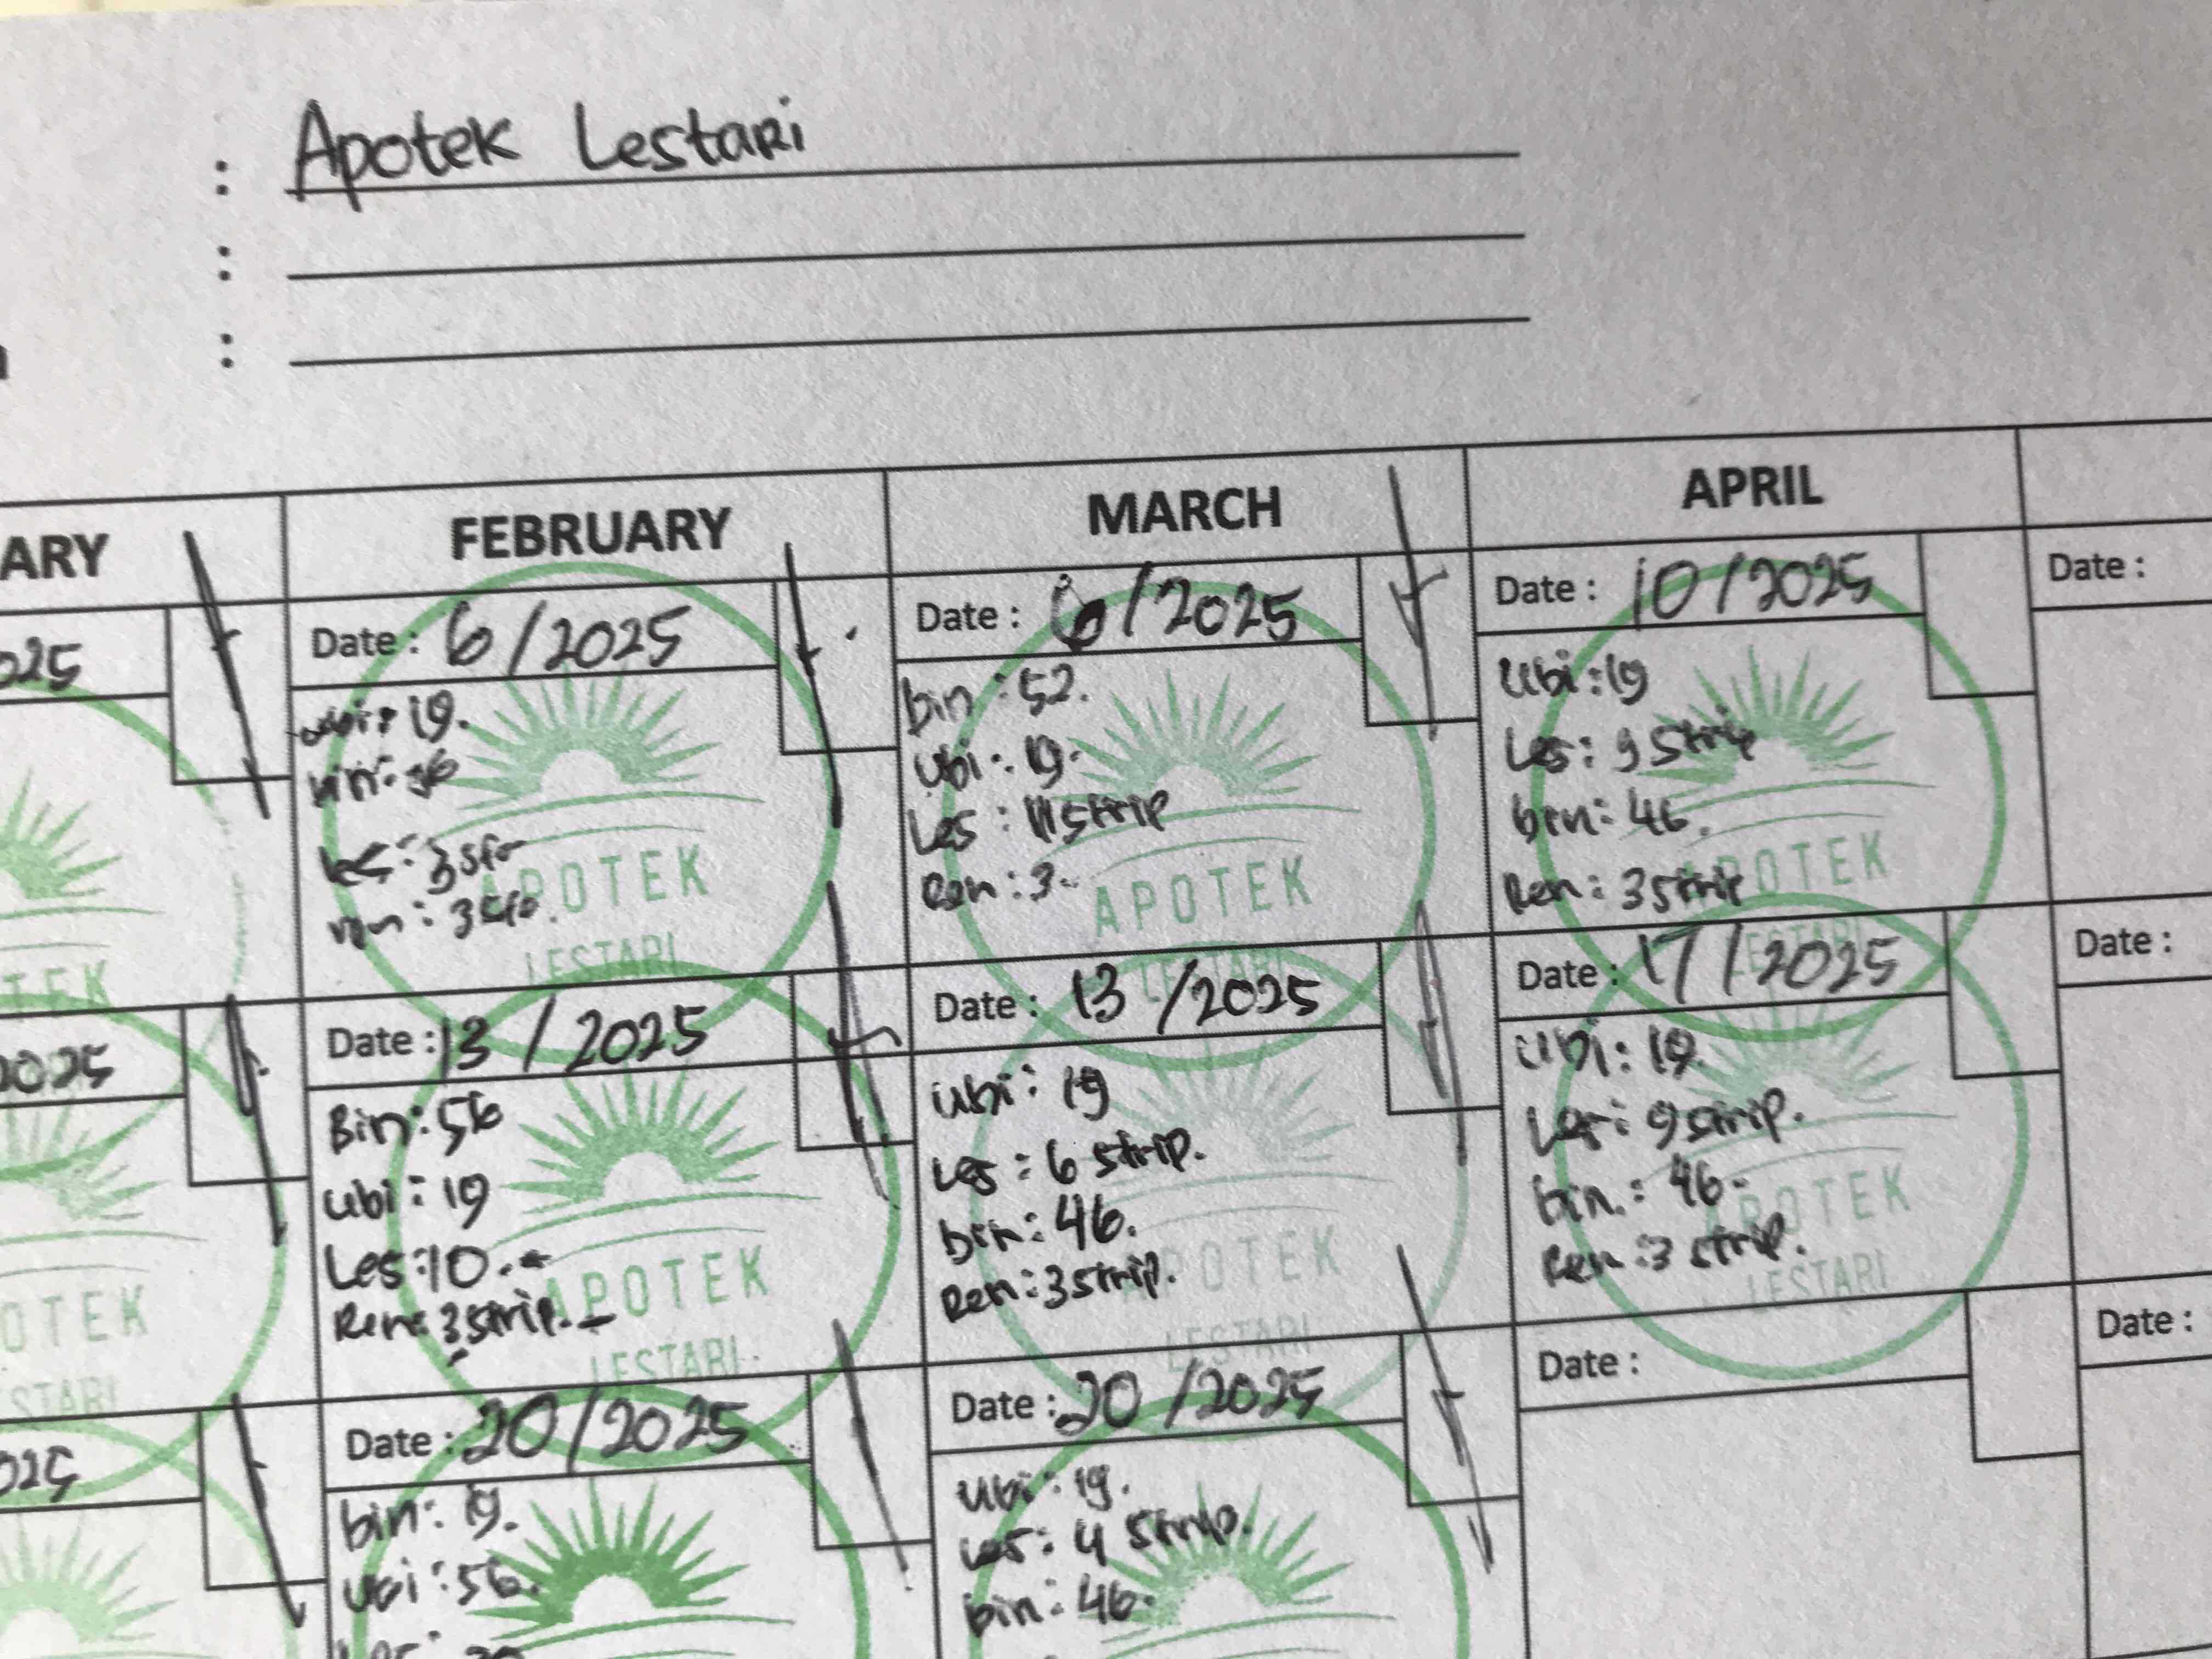 : Apotek Lestari
:
:
ARY
FEBRUARY
MARCH
APRIL
025
Date : 6 / 2025
ubi: 19.
APOTEK
LESTARI
Date : /2025
bin : 52.
ubi : 19.
Les : 11 strip
Ren : 3
APOTEK
LESTARI
Date : 10 / 2025
Ubi : 19
Les : 9 strip
bin : 46.
Ren : 3 strip
APOTEK
LESTARI
Date :
TEK
2025
Date : 13 / 2025
Bin : 56
ubi : 19
Les : 10.
Ren : 3 strip.
APOTEK
LESTARI
Date : 13 /2025
ubi : 19
Les : 6 strip.
bin : 46.
Ren : 3 strip.
APOTEK
LESTARI
Date : 17 / 2025
Ubi : 19.
Les : 9 strip.
bin : 46.
Ren : 3 strip.
APOTEK
LESTARI
Date :
OTEK
STARI
025
Date : 20 / 2025
bin : 19.
ubi : 56.
Date : 20 /2025
ubi : 19.
Les : 4 strip.
bin : 46.
Date :
Date :